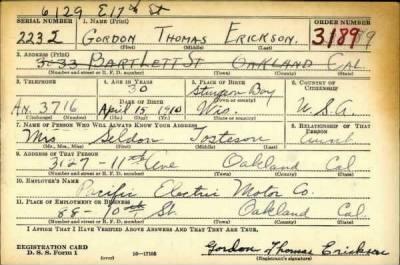 6129 E 17th St
SERIAL NUMBER 1. NAME (Print) ORDER NUMBER
2232 GORDON THOMAS ERICKSON. 3189
(First) (Middle) (Last)
3. ADDRESS (Print)
BARTLETT ST OAKLAND CAL
(Number and street or R. F. D. number) (Town) (County) (State)
3. TELEPHONE 4. AGE IN YEARS 5. PLACE OF BIRTH 6. COUNTRY OF CITIZENSHIP
30 Sturgeon Bay
AN. 3716 DATE OF BIRTH (Town or county)
April 15, 1910 Wis. U.S.A.
(Exchange) (Number) (Mo.) (Day) (Yr.) (State or country)
7. NAME OF PERSON WHO WILL ALWAYS KNOW YOUR ADDRESS 8. RELATIONSHIP OF THAT PERSON
Mrs. Seldon Josteson Aunt
9. ADDRESS OF THAT PERSON
3127 - 11th Ave Oakland Cal
(Number and street or R. F. D. number) (Town) (County) (State)
10. EMPLOYER'S NAME
Pacific Electric Motor Co.
11. PLACE OF EMPLOYMENT OR BUSINESS
St. Oakland Cal.
(Number and street or R. F. D. number) (Town) (County) (State)
I AFFIRM THAT I HAVE VERIFIED ABOVE ANSWERS AND THAT THEY ARE TRUE.
REGISTRATION CARD
D. S. S. Form 1 (over) 16-17105 Gordon Thomas Erickson
(Registrant's signature)